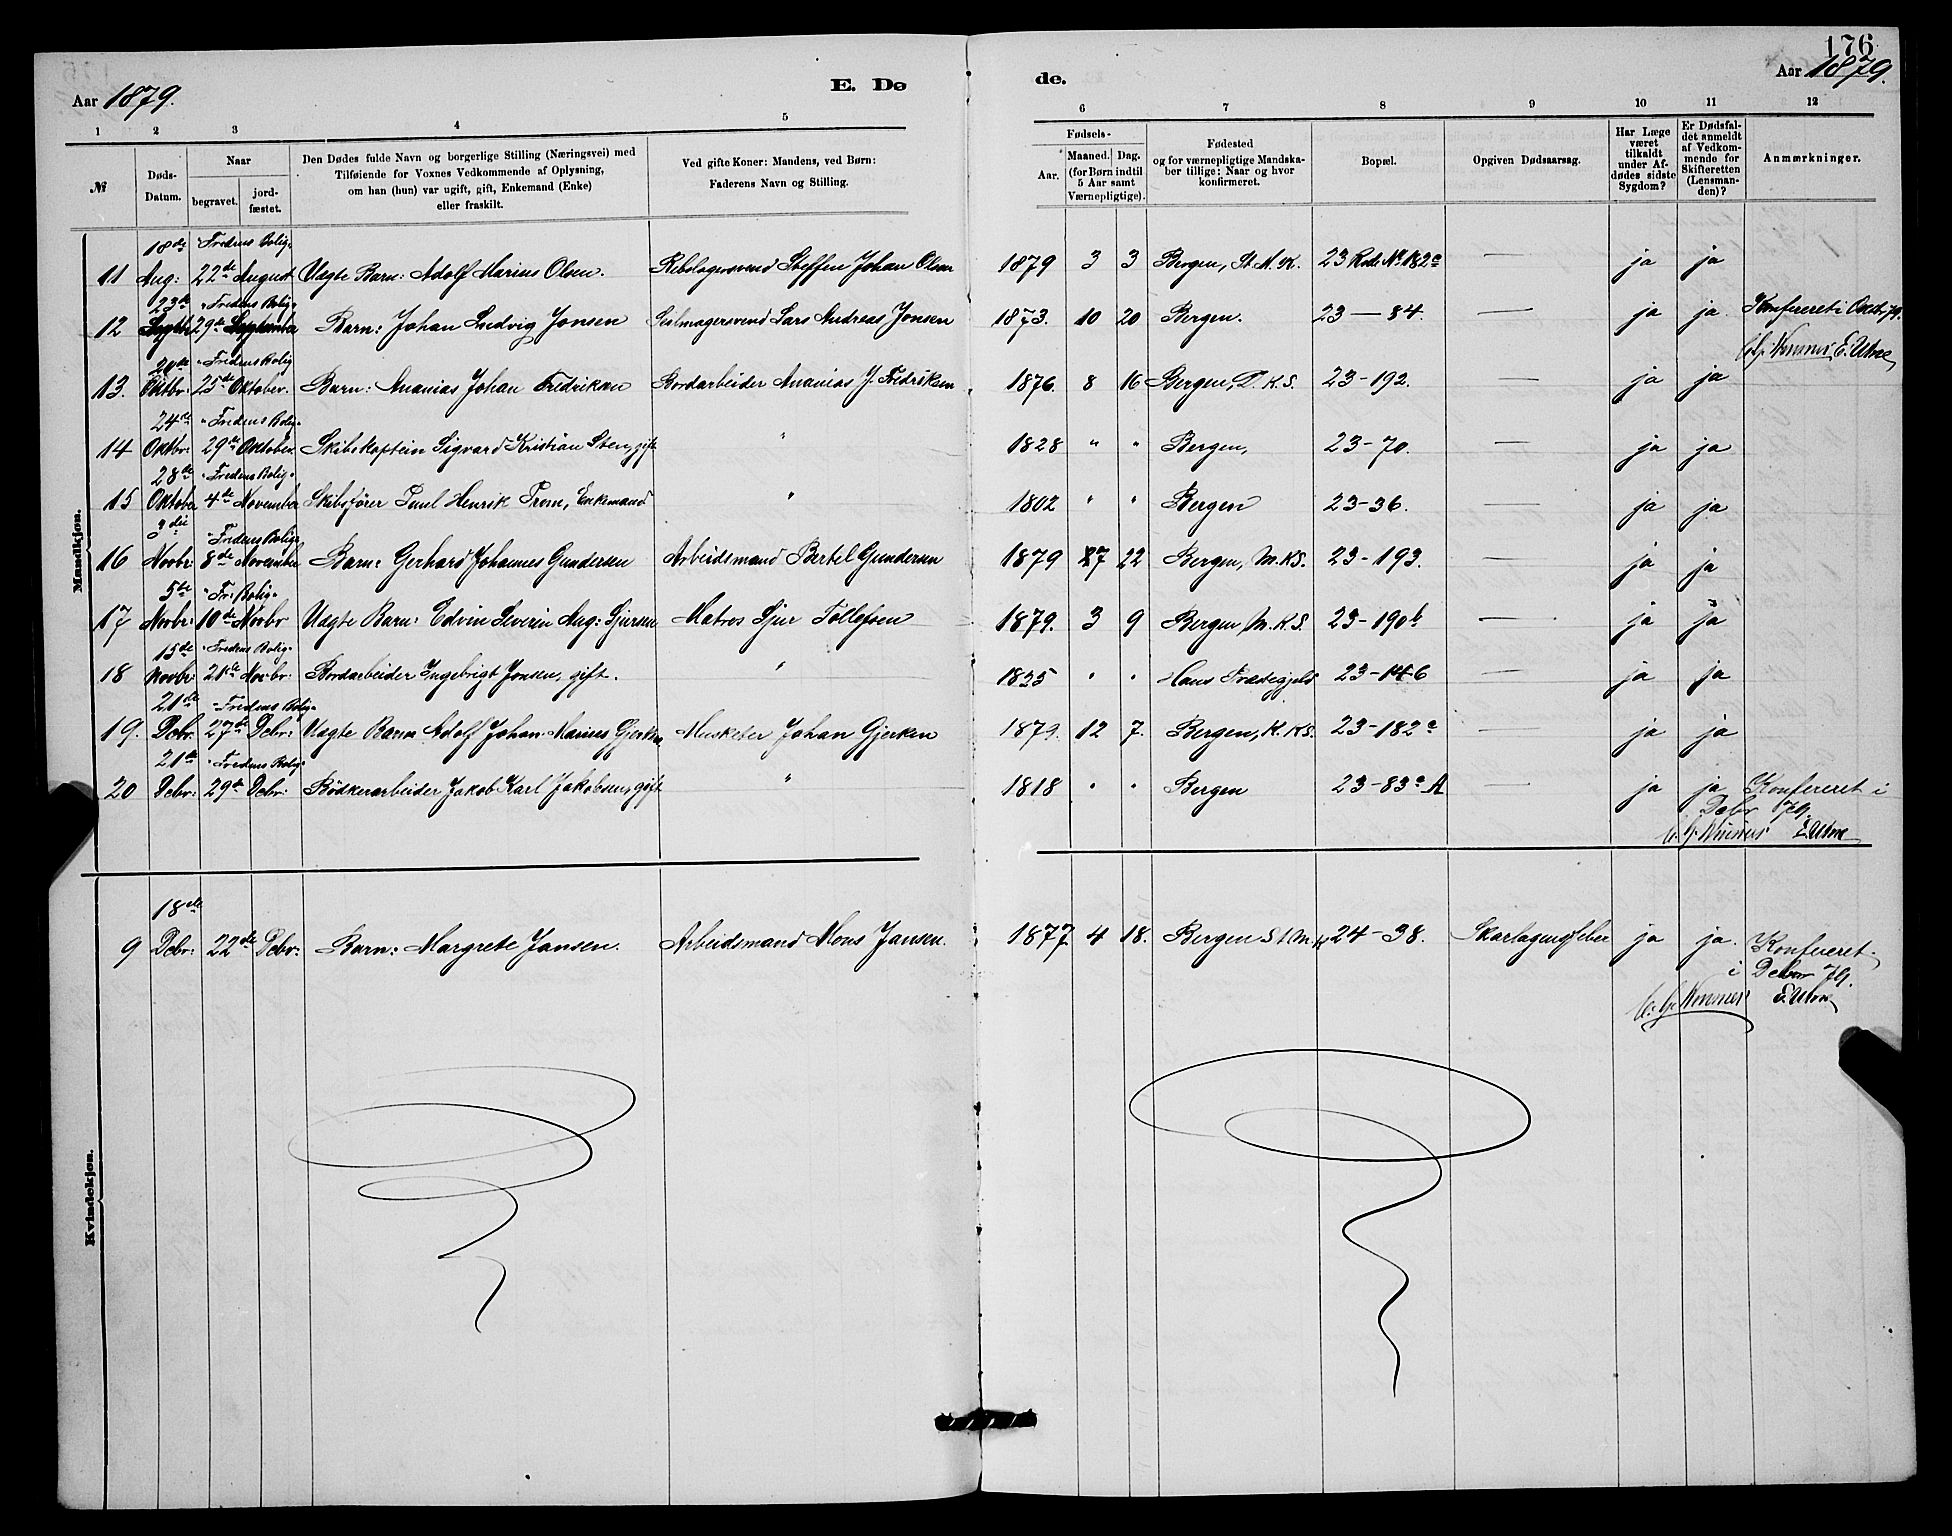 176
Aar 1879.
E. Dø
de.
Aar 1879.
1 2 3 4 5 6 7 8 9 10 11 12
№
Døds-Datum.
Naar
begravet.
jord-fæstet.
Den Dødes fulde Navn og borgerlige Stilling (Næringsvei) med
Tilføiende for Voxnes Vedkommende af Oplysning,
om han (hun) var ugift, gift, Enkemand (Enke)
eller fraskilt.
Ved gifte Koner: Mandens, ved Børn:
Faderens Navn og Stilling.
Fødsels-
Aar.
Maaned. Dag.
(for Børn indtil
5 Aar samt
Værnepligtige).
Fødested
og for værnepligtige Mandska-
ber tillige: Naar og hvor
konfirmeret.
Bopæl.
Opgiven Dødsaarsag.
Har Læge
været
tilkaldt
under Af-
dødes sidste
Sygdom?
Er Dødsfal-
det anmeldt
af Vedkom-
mende for
Skifteretten
(Lensman-
den)?
Anmærkninger.
Mandkjøn.
18de "Fredens Bolig"
11 Aug: 22de August Uægte Barn: Adolf Marius Olsen. Rebslagersvend Steffen Johan Olsen 1879 3 3 Bergen, St. M. K. 23 Rode No 182a — ja ja
23de "Fredens Bolig"
12 Septbr 29de September Barn: Johan Ludvig Jonsen Seilmagersvend Lars Andreas Jonsen 1873. 10 20 Bergen. 23 — 84. — ja ja. Konfereret i Octb. 79.
E. Utne
20de "Fredens Bolig
13. Oktbr: 25de Oktober. Barn: Ananias Johan Fredriksen Bordarbeider Ananias J. Fredriksen 1876. 8 16 Bergen, D. K. S. 23-192. — ja ja
24de "Fredens Bolig"
14 Oktbr: 29de Oktober. Skibskaptein Sigvard Kristian Sten, gift " 1828 " " Bergen, 23-70. — ja ja
28de "Fredens Bolig"
15 Oktober 4de November Skibsfører Poul Henrik From, Enkemand " 1802 " " Bergen 23-36. — ja ja
3die "Fredens Bolig"
16 Novbr: 8de November Barn: Gerhard Johannes Gundersen Arbeidsmand Bertel Gundersen 1879 7 22 Bergen, M. K. S. 23-193. — ja ja
5te "Fr: Bolig"
17 Novbr: 10de Novbr Uægte Barn: Edvin Severin Aug: Sjursen Matros Sjur Tollefsen 1879. 3 9 Bergen, M. K. S. 23-190b — ja ja
15de "Fredens Bolig"
18 Novbr: 21de Novbr: Bordarbeider Ingebrigt Jonsen, gift. " 1825 " " Hans Præstegjeld 23-146 — ja ja
21de "Fredens Bolig"
19. Debr. 27de Debr: Uægte Barn Adolf Johan Marius Gjerken Musketer Johan Gjerken 1879. 12 7. Bergen, K. K. S. 23-182a — ja ja
21de "Fredens Bolig"
20 Debr: 29de Debr: Bødkerarbeider Jakob Karl Jakobsen, gift " 1818 " " Bergen 23-83a A — ja ja Konfereret i
Debr 79.
E Utne
Kvindekjøn.
18de
9 Debr: 22de Debr: Barn: Margrete Jansen. Arbeidsmand Mons Jansen. 1877 4 18. Bergen St M K 24-38. Skarlagensfeber ja ja. Konfereret
i Debr 79.
E. Utne